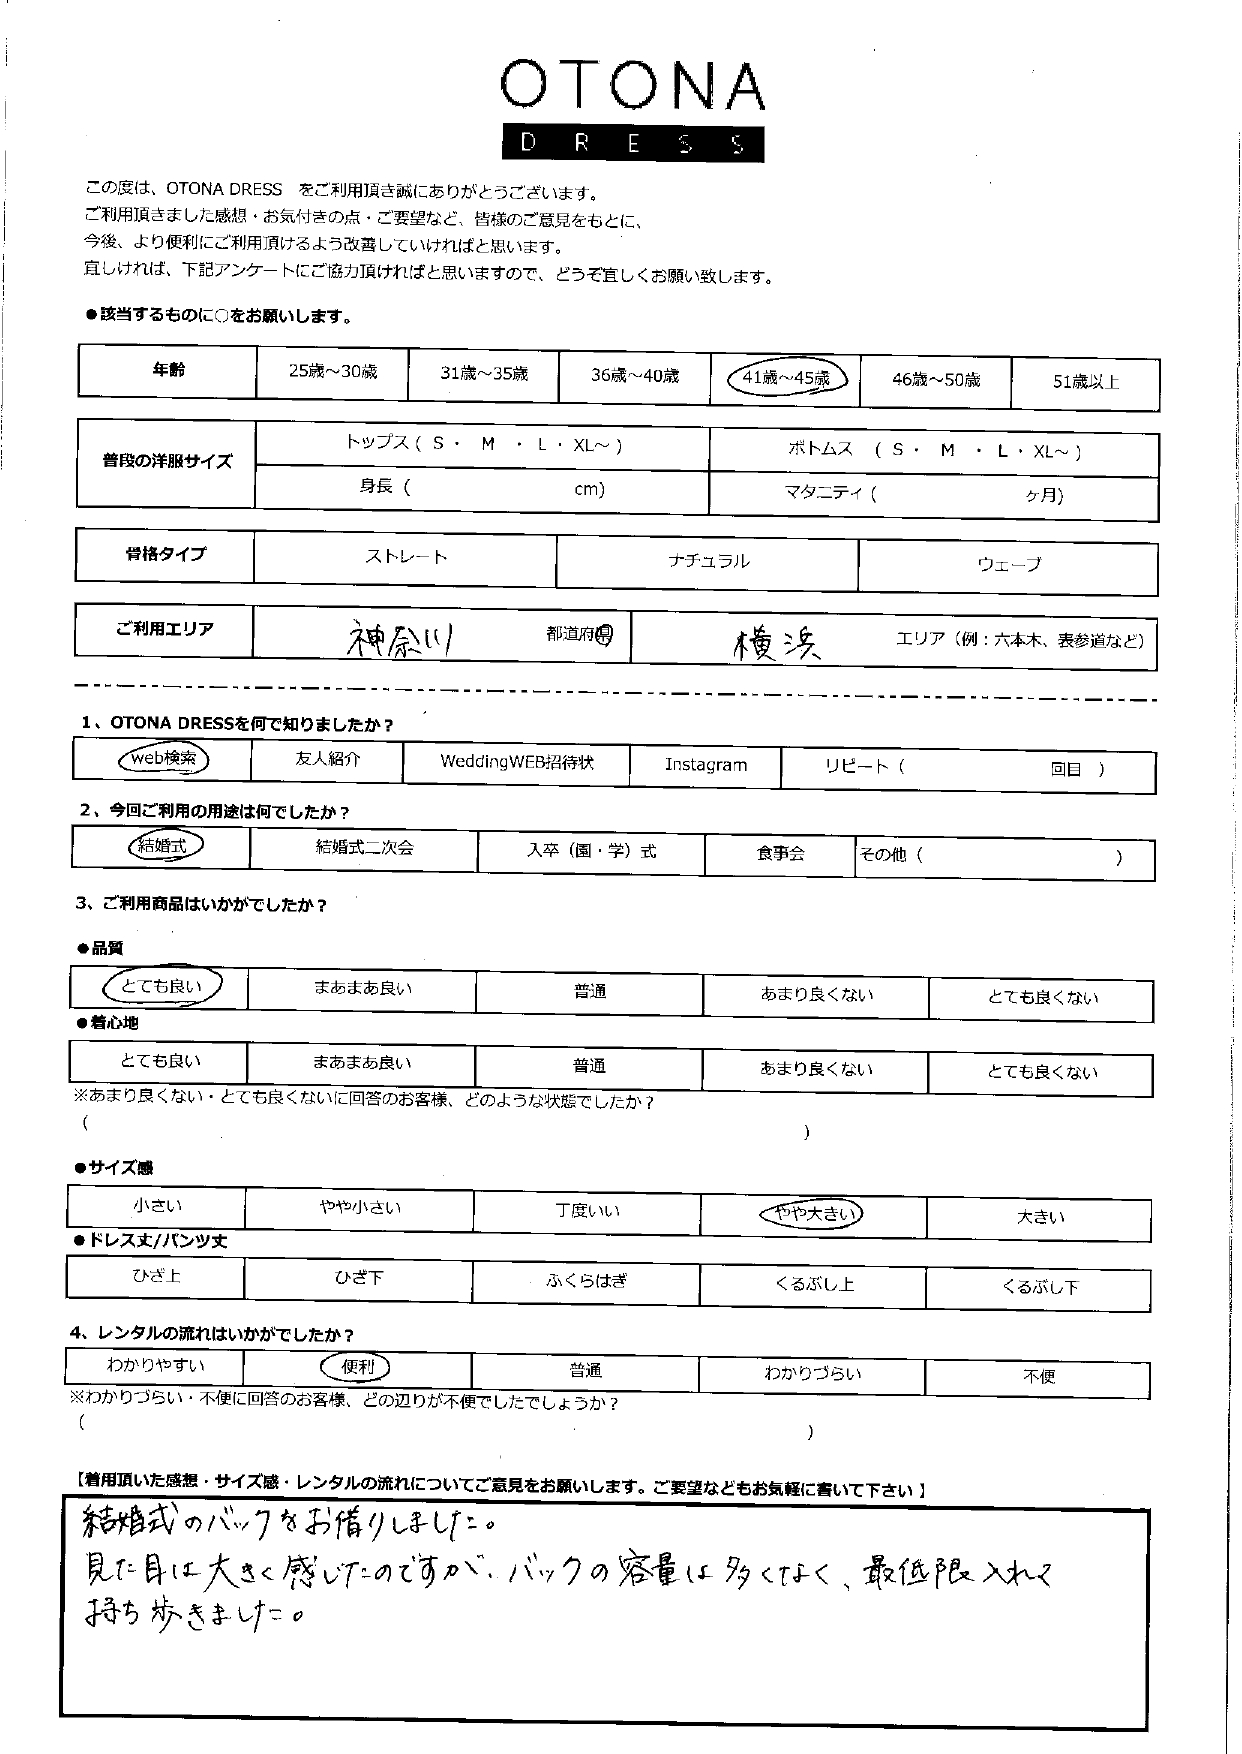 OTONA
DRESS
この度は、OTONA DRESS　をご利用頂き誠にありがとうございます。
ご利用頂きました感想・お気付きの点・ご要望など、皆様のご意見をもとに、
今後、より便利にご利用頂けるよう改善していければと思います。
宜しければ、下記アンケートにご協力頂ければと思いますので、どうぞ宜しくお願い致します。
●該当するものに○をお願いします。
年齢 25歳～30歳 31歳～35歳 36歳～40歳 41歳～45歳 46歳～50歳 51歳以上
普段の洋服サイズ トップス ( S ・ M ・ L ・ XL～ ) ボトムス ( S ・ M ・ L ・ XL～ )
身長 ( cm) マタニティ ( ヶ月)
骨格タイプ ストレート ナチュラル ウェーブ
ご利用エリア 神奈川 都道府県 横浜 エリア（例：六本木、表参道など）
1、OTONA DRESSを何で知りましたか？
web検索 友人紹介 WeddingWEB招待状 Instagram リピート（ 回目 ）
2、今回ご利用の用途は何でしたか？
結婚式 結婚式二次会 入卒（園・学）式 食事会 その他（ ）
3、ご利用商品はいかがでしたか？
●品質
とても良い まあまあ良い 普通 あまり良くない とても良くない
●着心地
とても良い まあまあ良い 普通 あまり良くない とても良くない
※あまり良くない・とても良くないに回答のお客様、どのような状態でしたか？
( )
●サイズ感
小さい やや小さい 丁度いい やや大きい 大きい
●ドレス丈/パンツ丈
ひざ上 ひざ下 ふくらはぎ くるぶし上 くるぶし下
4、レンタルの流れはいかがでしたか？
わかりやすい 便利 普通 わかりづらい 不便
※わかりづらい・不便に回答のお客様、どの辺りが不便でしたでしょうか？
( )
【着用頂いた感想・サイズ感・レンタルの流れについてご意見をお願いします。ご要望などもお気軽に書いて下さい】
結婚式のバックをお借りしました。
見た目は大きく感じたのですが、バックの容量は多くなく、最低限入れて
持ち歩きました。